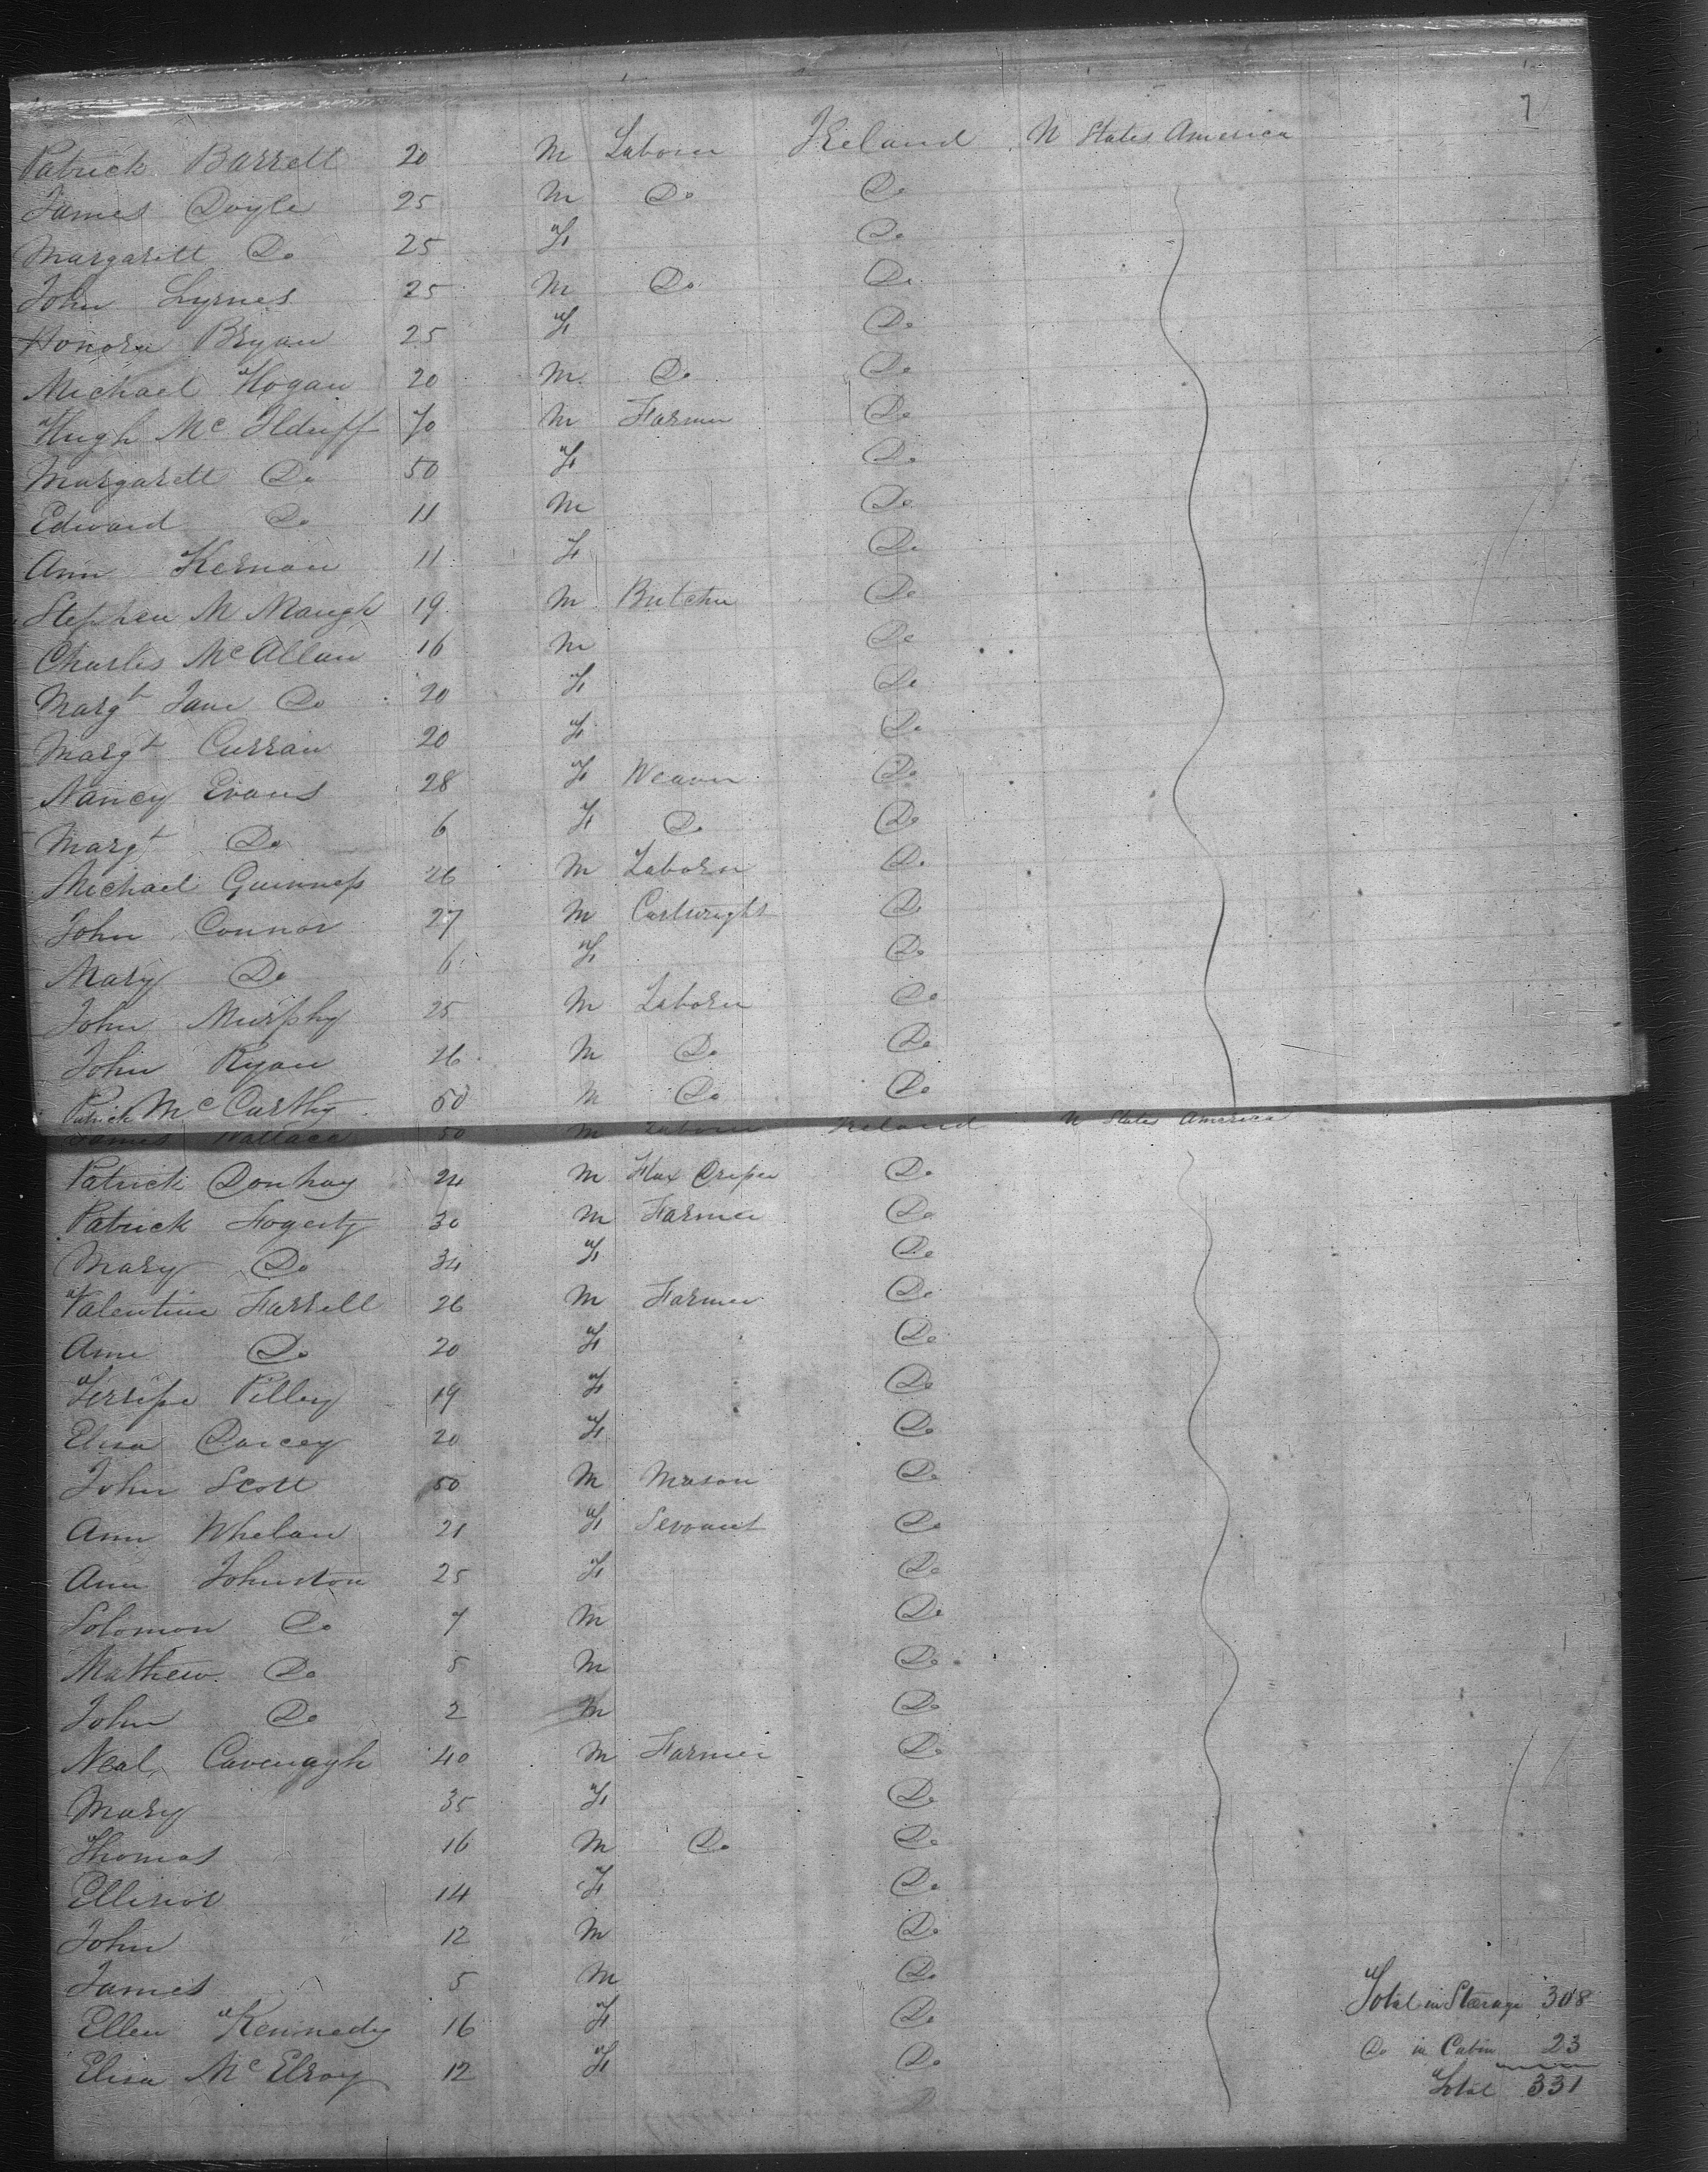 7
Patrick Barrett 20 M Laborer Ireland U States America
James Doyle 25 M Do Do
Margarett Do 25 F Do
John Lyrnes 25 M Do Do
Honora Bryan 25 F Do
Michael Hogan 20 M Do Do
Hugh Mc Ilduff 70 M Farmer Do
Margarett Do 50 F Do
Edward Do 11 M Do
Ann Kernan 11 F Do
Stephen M Maugh 19 M Butcher Do
Charles McAllan 16 M Do
Margt Jane Do 20 F Do
Margt Curran 20 F Do
Nancy Evans 28 F Weaver Do
Margt Do 6 F Do Do
Michael Guinness 26 M Laborer Do
John Connor 27 M Cartwright Do
Mary Do 6 F Do
John Murphy 25 M Laborer Do
John Ryan 26 M Do Do
Patrick Mc Carthy 50 M Do Do
James Wallace 50 M Laborer Ireland U States America
Patrick Donhay 24 M Flax Do
Patrick Fogerty 30 M Farmer Do
Mary Do 34 F Do
Valentine Farrell 26 M Farmer Do
Ann Do 20 F Do
Pilley 19 F Do
Elisa Darcey 20 F Do
John Scott 50 M Mason Do
Ann Whelan 21 F Servant Do
Ann Johnston 25 F Do
Solomon Do 7 M Do
Mathew Do 5 M Do
John Do 2 M Do
Neal Cavenagh 40 M Farmer Do
Mary 35 F Do
Thomas 16 M Do Do
Ellinor 14 F Do
John 12 M Do
James 5 M Do
Ellen Kennedy 16 F Do
Elisa Mc Elroy 12 F Do
Total in Sterage 308
Do in Cabin 23
Total 331